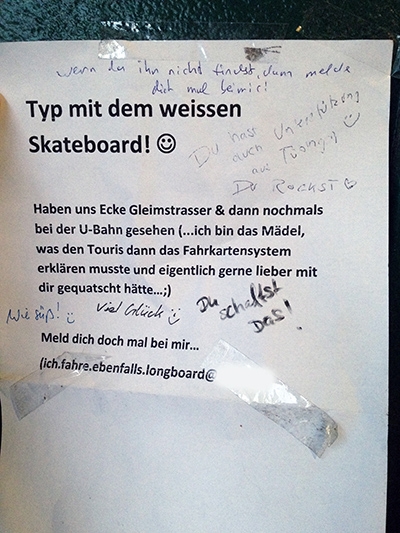 wenn du ihn nicht findest, dann melde
dich mal bei mir!
Typ mit dem weissen
Skateboard! ☺
Du hast Unterstützung
auch aus
Du Rockst ♡
Haben uns Ecke Gleimstrasser & dann nochmals
bei der U-Bahn gesehen (...ich bin das Mädel,
was den Touris dann das Fahrkartensystem
erklären musste und eigentlich gerne lieber mit
dir gequatscht hätte...;)
Wie süß! :)
Viel Glück :)
Du schaffst
Das!
Meld dich doch mal bei mir...
(ich.fahre.ebenfalls.longboard@